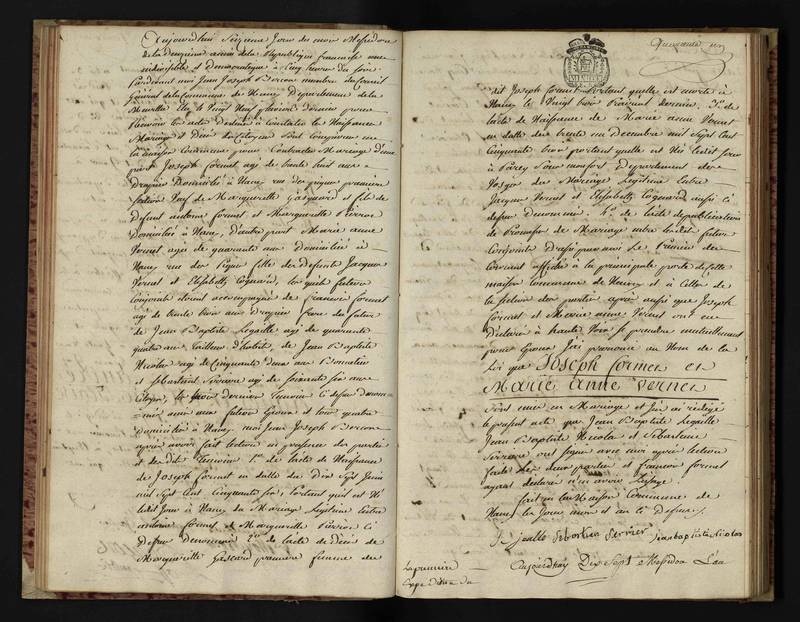 Aujourd'hui Seizieme Jour du mois Messidor
de la deuxieme année de la République francaise une
indivisible et Democratique à Cinq heures du Soir
Pardevant moi Jean Joseph membre du Conseil
Général de la Commune de Nancy Département de la
Meurthe Elu le Vingt Neuf dernier pour
Recevoir les actes Destiné à Constater les Naissances
Mariages et Décès des Citoyens Sont Comparus en
la maison Commune pour Contracter Mariage d'une
part Joseph Cormet agé de trente huit ans
Dragier Domicilié à Nancy rue premiere
Section Veuf de Marguerite Gascard et fils de
Defunt antoine Cormet et Marguerite Pierron
Domiciliés à Nancy, D'autre part Marie anne
Vernet agée de quarante ans Domiciliée à
Nancy rue fille des Defunts Jacques
Vernet et Elisabeth Coquard, lesquels futurs
Conjoints étant accompagnés de francois Cormet
agé de trente trois ans Dragier frere du futur
de Jean Baptiste Legaille agé de quarante
quatre ans tailleur d'habits, de Jean Baptiste
Nicolas agé de Cinquante deux ans
et Sebastien agé de Soixante ans
Citoyen, les trois derniers Temoins Ci dessus denom-
-més et tous quatre
domiciliés à Nancy, moi Jean Joseph
après avoir fait lecture en presence des parties
et des dits Temoins 1.º de l'acte de Naissance
de Joseph Cormet en datte du Dix Sept Juin
mil Sept Cent Cinquante Six, Portant qu'il est Né
ledit Jour à Nancy du Mariage Legitime Entre
antoine Cormet et Marguerite Pierron Ci
dessus denommés 2.º de l'acte de Décès de
Marguerite Gascard premiere femme du
Quarante un
dit Joseph Cormet Portant qu'elle est morte à
Nancy le Vingt trois Prairial dernier. 3.º de
l'acte de Naissance de Marie anne Vernet
en datte du trente un Decembre mil Sept Cent
Cinquante trois portant qu'elle est Née ledit Jour
à Parey Sous montfort Departement des
Vosges du Mariage Legitime Entre
Jacques Vernet et Elisabeth Coquard aussi Ci
dessus denommés. 4.º de l'acte de publication
de Promesse de Mariage entre les dits futurs
Conjoints Dressé par moi Le
Courant affiché à la principale porte de cette
maison Commune de Nancy et à Celle de
la Section des parties après aussi que Joseph
Cormet et Marie anne Vernet ont eu
Déclaré à haute Voix Se prendre mutuellement
pour Epoux J'ai prononcé au Nom de la
Loi que Joseph Cormet et
Marie Anne Vernet
Sont unis en Mariage et J'en ai rédigé
le present acte que Jean Baptiste Legaille
Jean Baptiste Nicolas et Sebastien
ont signé avec moi après lection
faite Les deux parties et francois Cormet
ayant declaré n'en avoir l'usage.
fait en la Maison Commune de
Nancy les Jour, mois et an Ci dessus.
Sebastien Jean baptiste Nicolas
La premiere
Expedition du
Aujourdhuy Dix Sept Messidor L'an